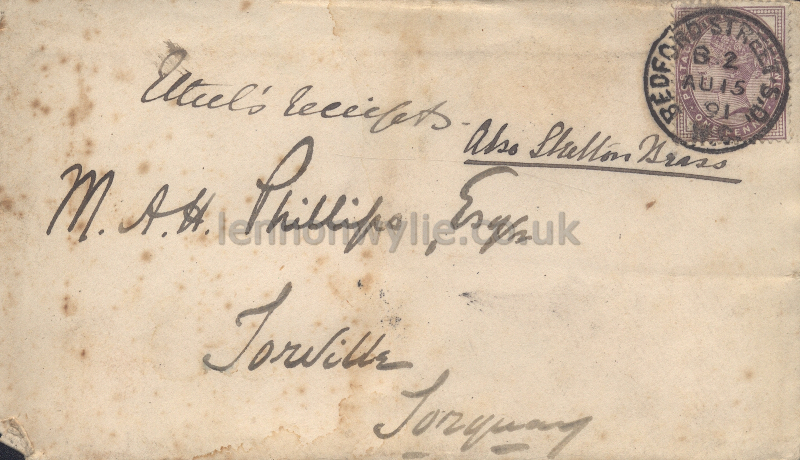 BEDFORD STREET S.O.
B 2
AU 15
91
W.C.
Ethel's receipts
Also Skelton Brass
M. A. H. Phillips, Esqr
lennonwylie.co.uk
Torville
Torquay